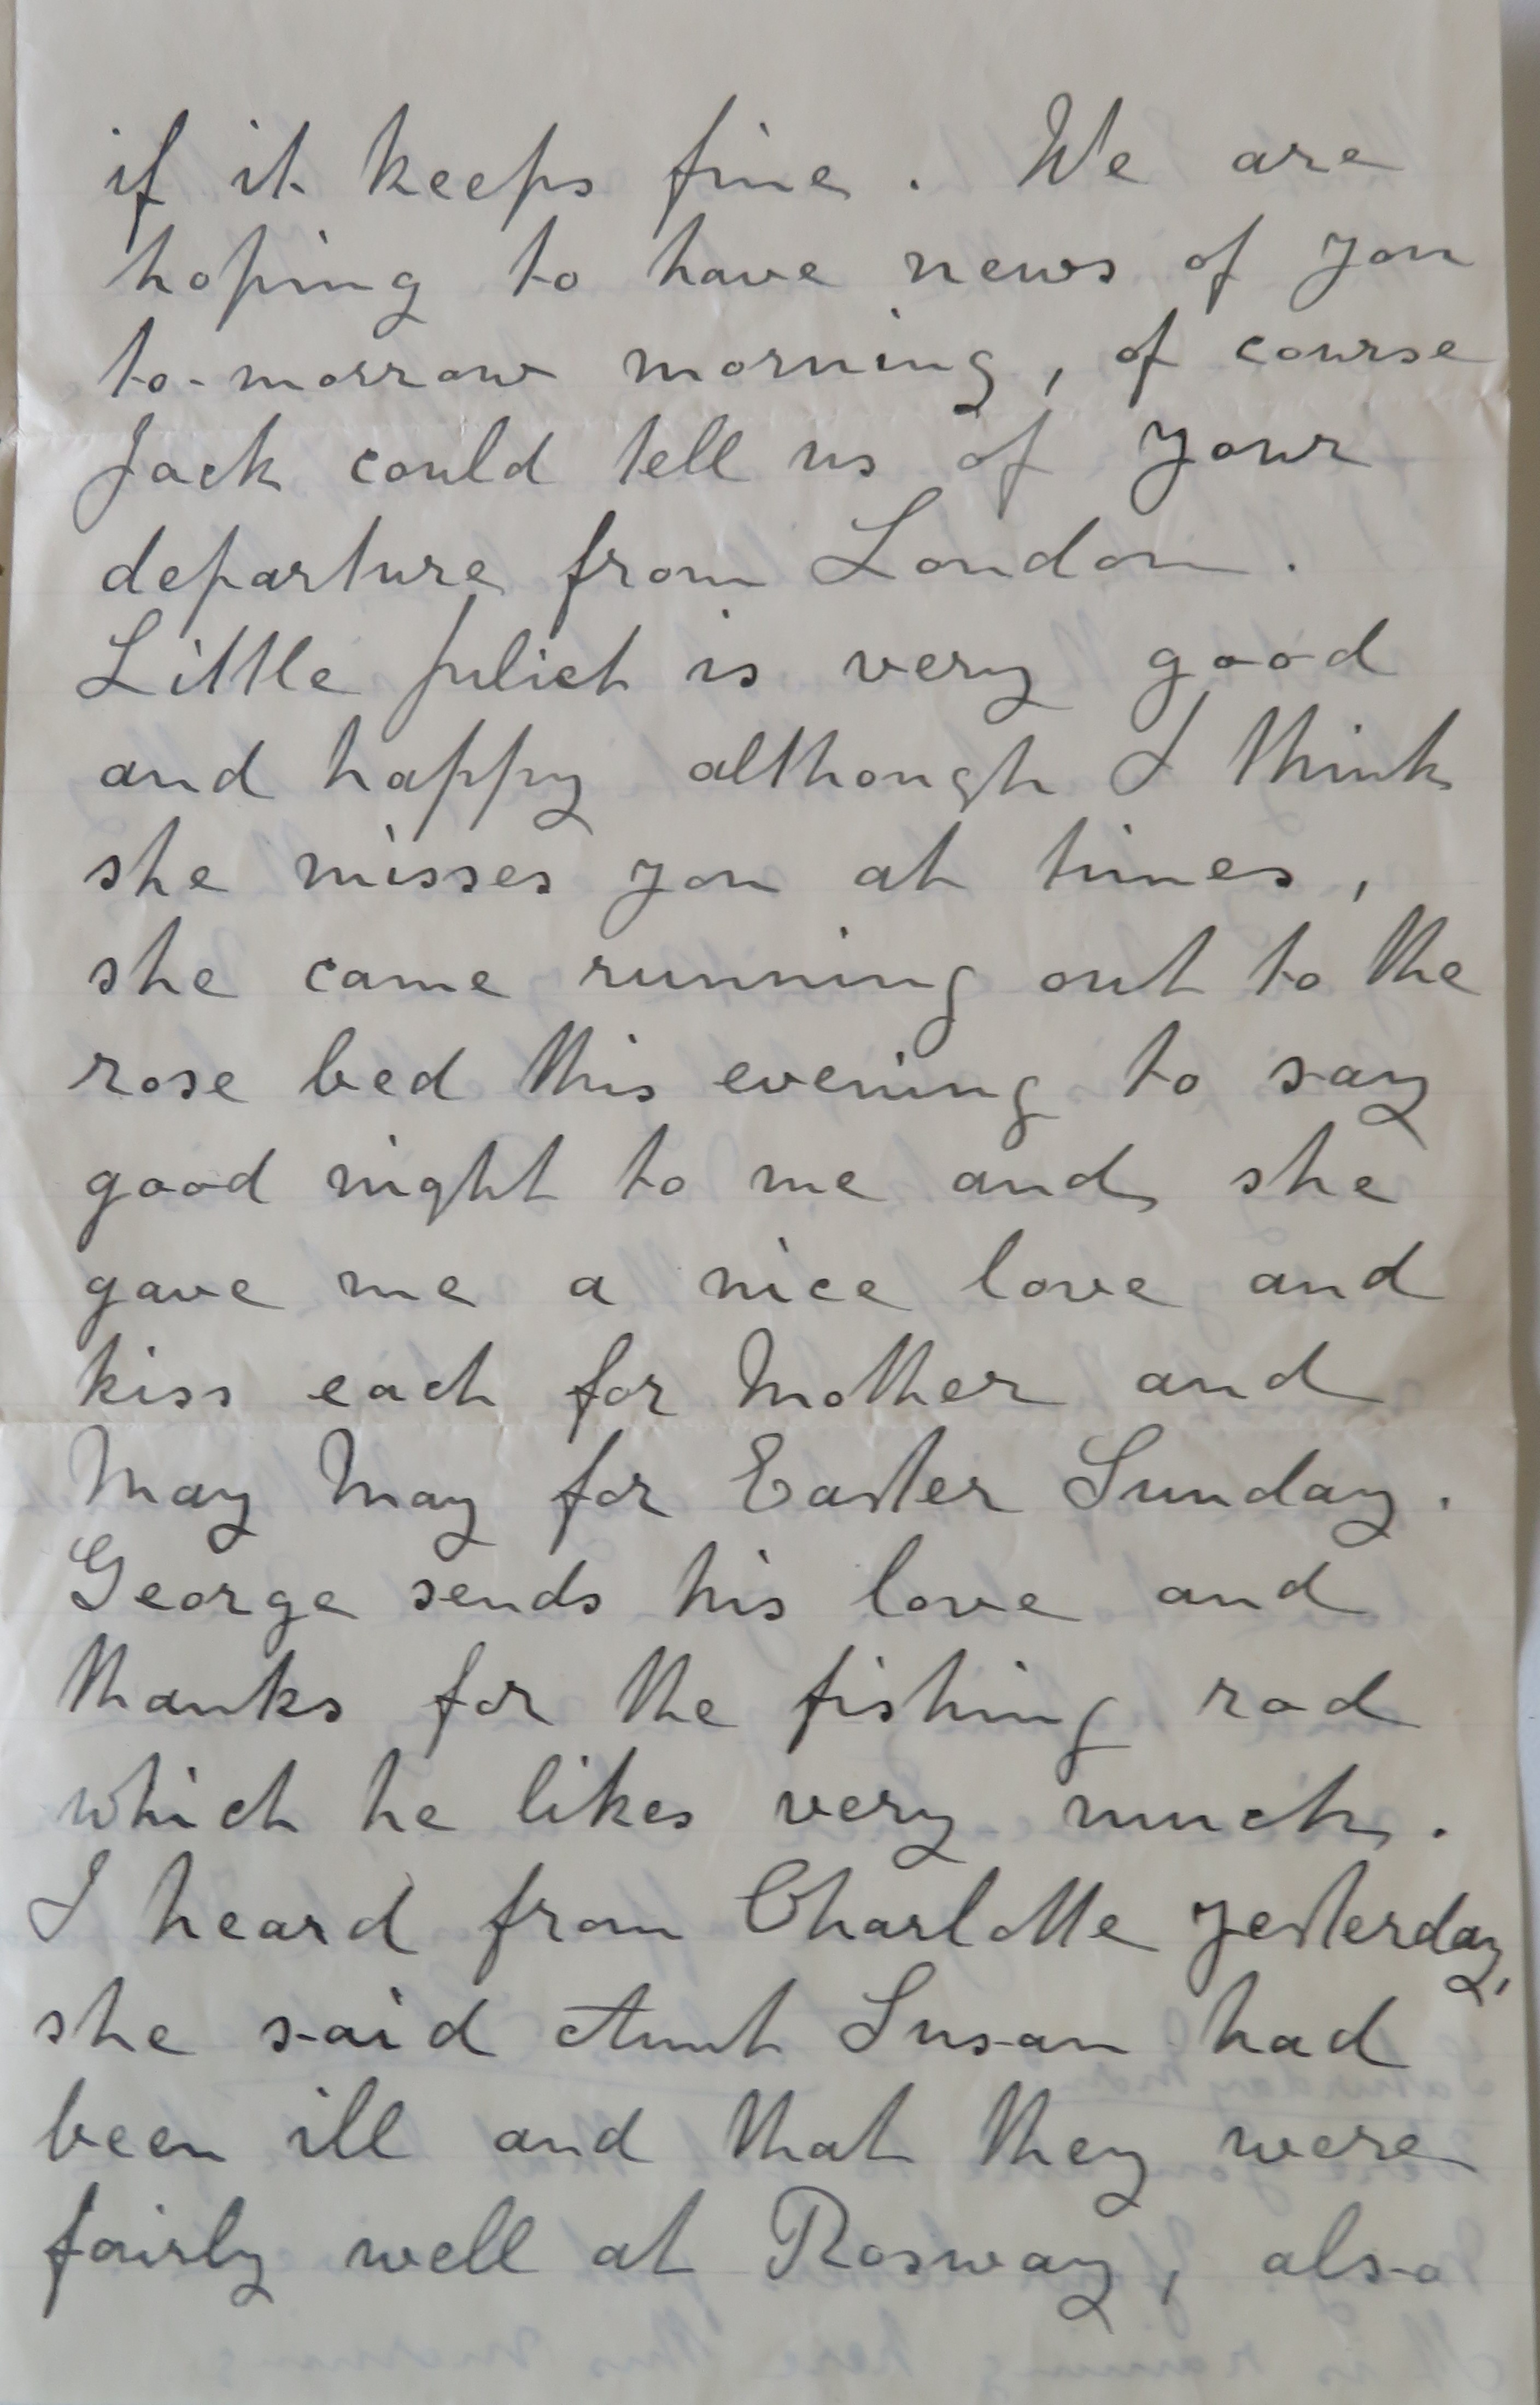 if it keeps fine. We are
hoping to have news of you
to-morrow morning, of course
Jack could tell us of your
departure from London.
Little Juliet is very good
and happy although I think
she misses you at times,
she came running out to the
rose bed this evening to say
good night to me and she
gave me a nice love and
kiss each for Mother and
May May for Easter Sunday.
George sends his love and
thanks for the fishing rod
which he likes very much.
I heard from Charlotte yesterday,
she said Aunt Susan had
been ill and that they were
fairly well at Rosway, also